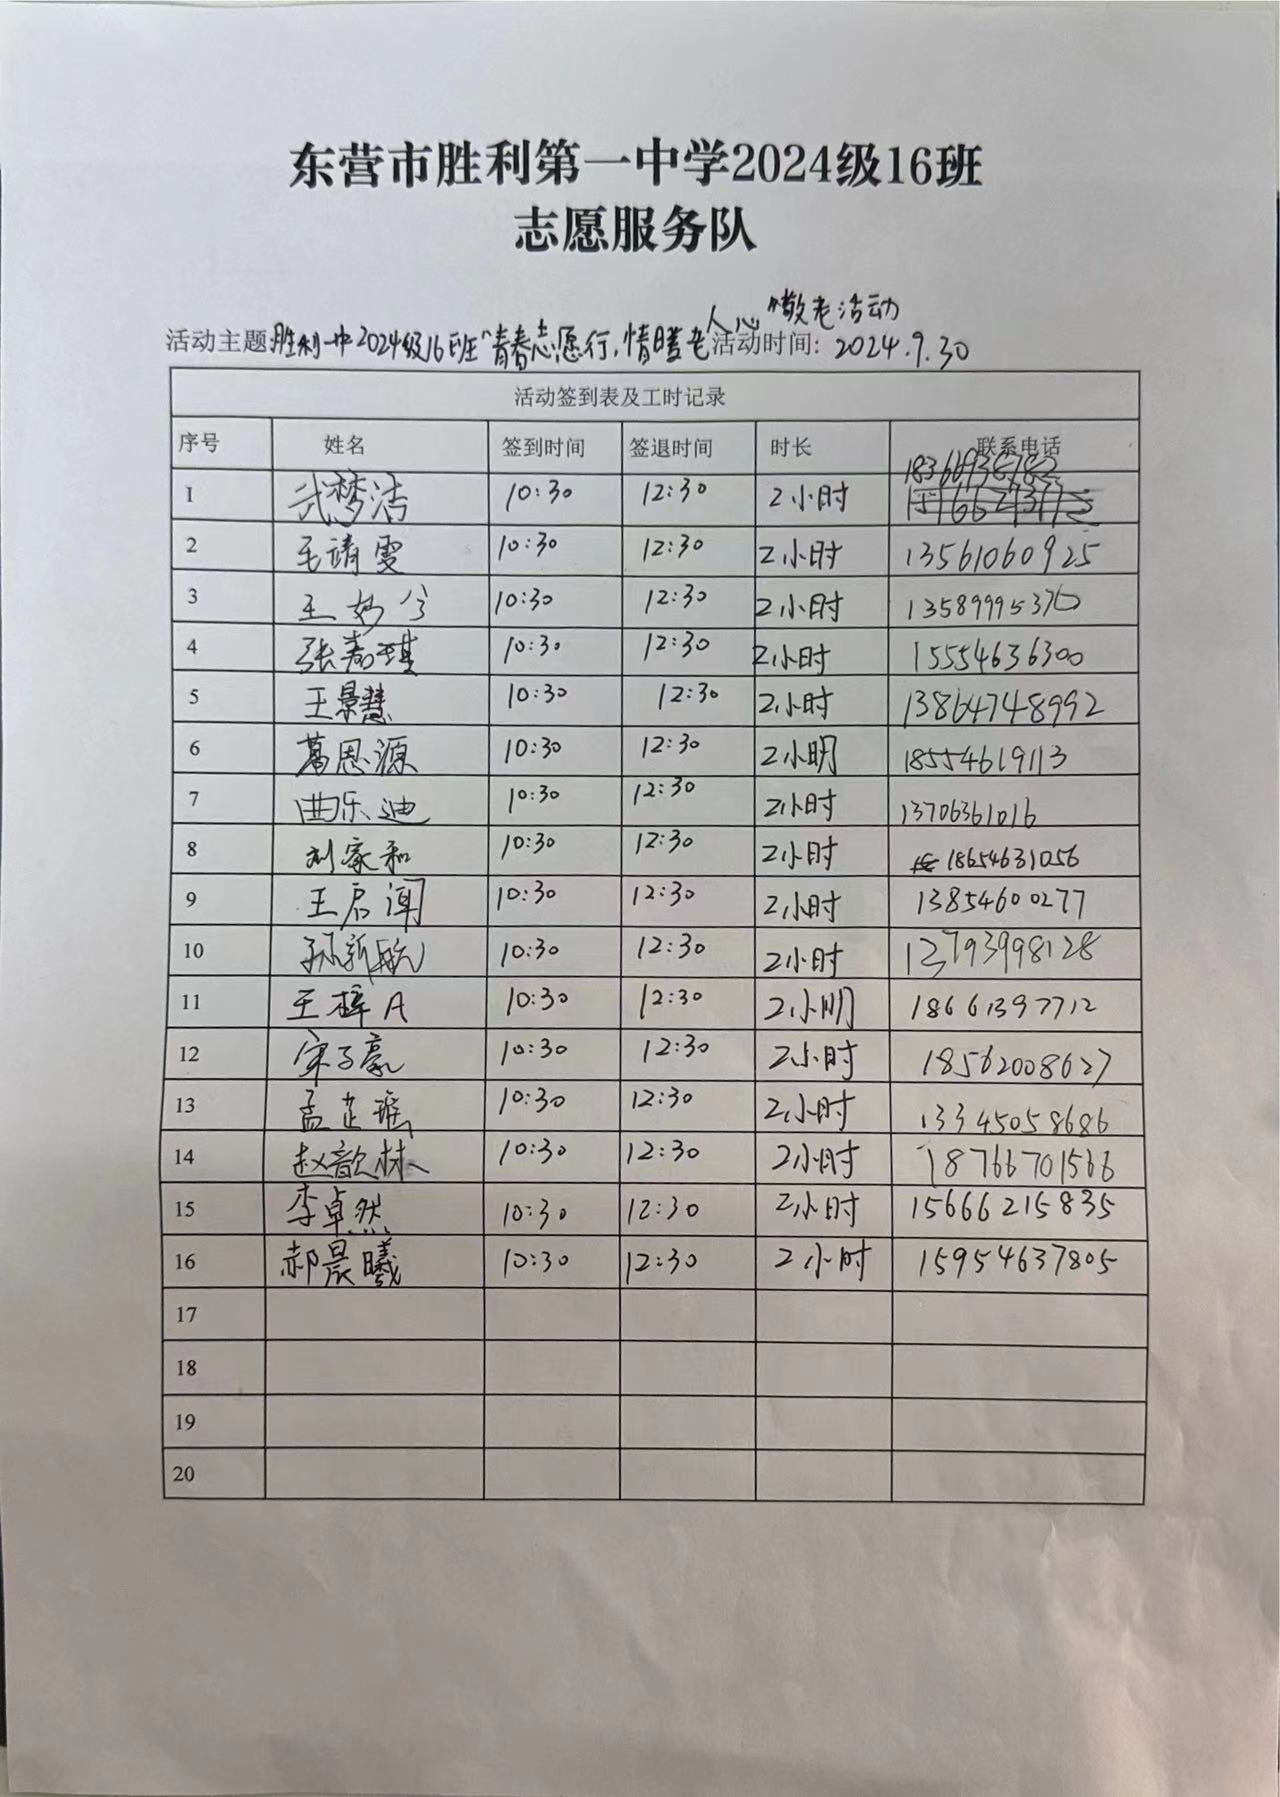 东营市胜利第一中学2024级16班
志愿服务队
活动主题:胜利一中2024级16班“青春志愿行,情暖老人心”敬老活动 活动时间: 2024.9.30
活动签到表及工时记录
序号 姓名 签到时间 签退时间 时长 联系电话
1 武梦洁 10:30 12:30 2小时 18366938782
2 毛靖雯 10:30 12:30 2小时 13561060925
3 王妙兮 10:30 12:30 2小时 13589995370
4 张嘉琪 10:30 12:30 2小时 15554636300
5 王景慧 10:30 12:30 2小时 13864748992
6 葛恩源 10:30 12:30 2小时 18554619113
7 曲乐迪 10:30 12:30 2小时 13706361016
8 刘家和 10:30 12:30 2小时 18654631056
9 王启润 10:30 12:30 2小时 13854600277
10 孙新航 10:30 12:30 2小时 13793998128
11 王梓 10:30 12:30 2小时 18661397712
12 宋子豪 10:30 12:30 2小时 18562008627
13 孟芷瑶 10:30 12:30 2小时 13345058686
14 赵歆林 10:30 12:30 2小时 18766701566
15 李卓然 10:30 12:30 2小时 15666215835
16 郝晨曦 10:30 12:30 2小时 15954637805
17
18
19
20